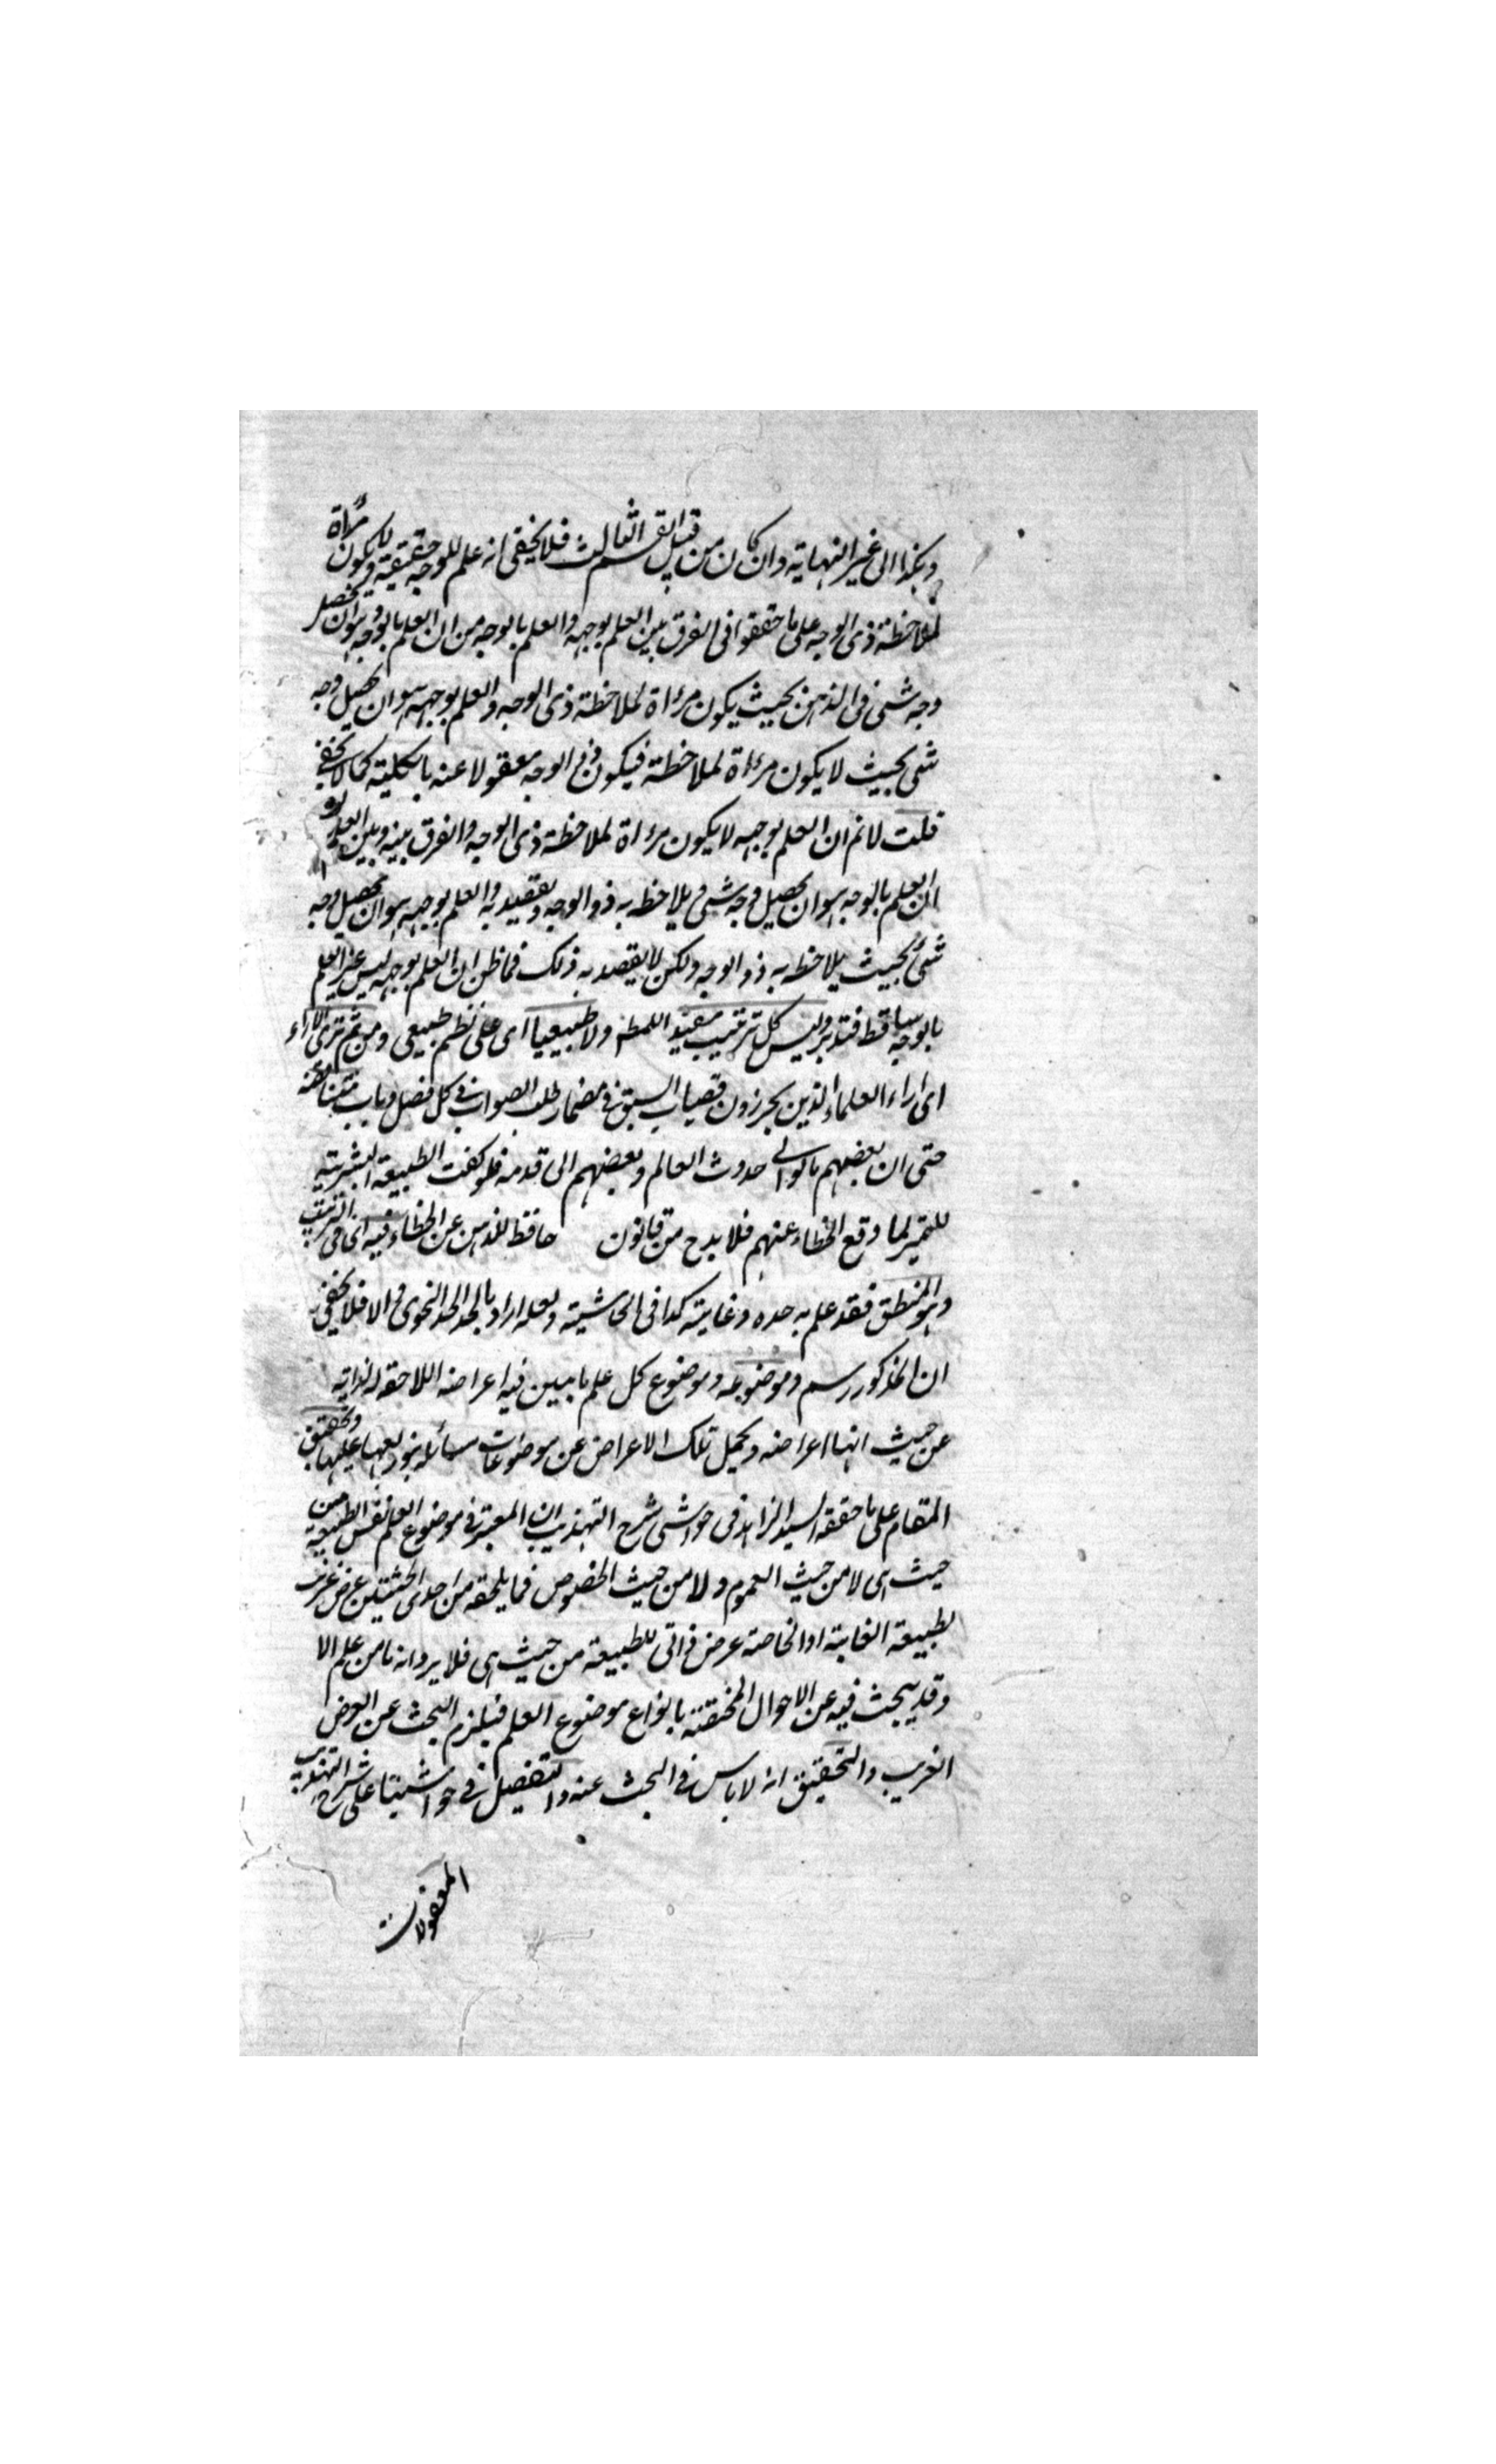 وهكذا الى غير النهاية وان كان من قبيل القسم الثالث فلا يخفى انه علم للوجه حقيقة ويكون مرآة
لملاحظة ذى الوجه على ما حققوا فى الفرق بين العلم بوجهه والعلم بالوجه من ان العلم بالوجه هو ان يحصل
وجه شئ فى الذهن بحيث يكون مرءاة لملاحظة ذى الوجه والعلم بوجهه هو ان يحصل وجه
شئ بحيث لا يكون مرءاة لملاحظة فيكون ذى الوجه معقولا عنه بالكلية كما لا يخفى
قلت لا نم ان العلم بوجهه لا يكون مرءاة لملاحظة ذى الوجه والفرق بينه وبين العلم
ان العلم بالوجه هو ان يحصل وجه شئ ويلاحظ به ذو الوجه ويقصد به والعلم بوجهه هو ان يحصل وجه
شئ بحيث يلاحظ به ذو الوجه ولكن لا يقصد به ذلك فما ظن ان العلم بوجهه ليس غير العلم
بالوجه ساقط فتدبر وليس كل ترتيب مفيدا للمط ولا طبيعيا اى على نظم طبيعى ومن ثم ترى الاراء
اى اراء العلماء الذين يحرزون قصبات السبق فى مضمار طلب الصواب فى كل فصل وباب متناقضة
حتى ان بعضهم مالوا الى حدوث العالم وبعضهم الى قدمه فلو كفت الطبيعة البشرية
للتميز لما وقع الخطاء عنهم فلا بد ح من قانون حافظ للذهن عن الخطاء فيه اى فى الترتيب
وهو المنطق فقد علم به حده وغايته كذا فى الحاشية ولعله اراد بالحد الحد النحوى والا فلا يخفى
ان المذكور رسم وموضوعه وموضوع كل علم ما يبين فيه اعراضه اللاحقة لذاته
من حيث انها اعراضه ويحمل تلك الاعراض عن موضوعات مسائله عليها وتحقيق
المقام على ما حققه السيد الزاهد فى حواشى شرح التهذيب ان المعتبر فى موضوع العلم نفس الطبيعة من
حيث هى لا من حيث العموم ولا من حيث الخصوص فما يلحقه من احدى الحيثيتين عرض غريب
لطبيعة الغابته او الخاصة عرض ذاتى للطبيعة من حيث هى فلا يرد انه ما من علم الا
وقد يبحث فيه عن الاحوال المختصة بانواع موضوع العلم فيلزم البحث عن العرض
الغريب والتحقيق انه لا باس فى البحث عنه والتفصيل فى حواشينا على شرح التهذيب
المعقولات